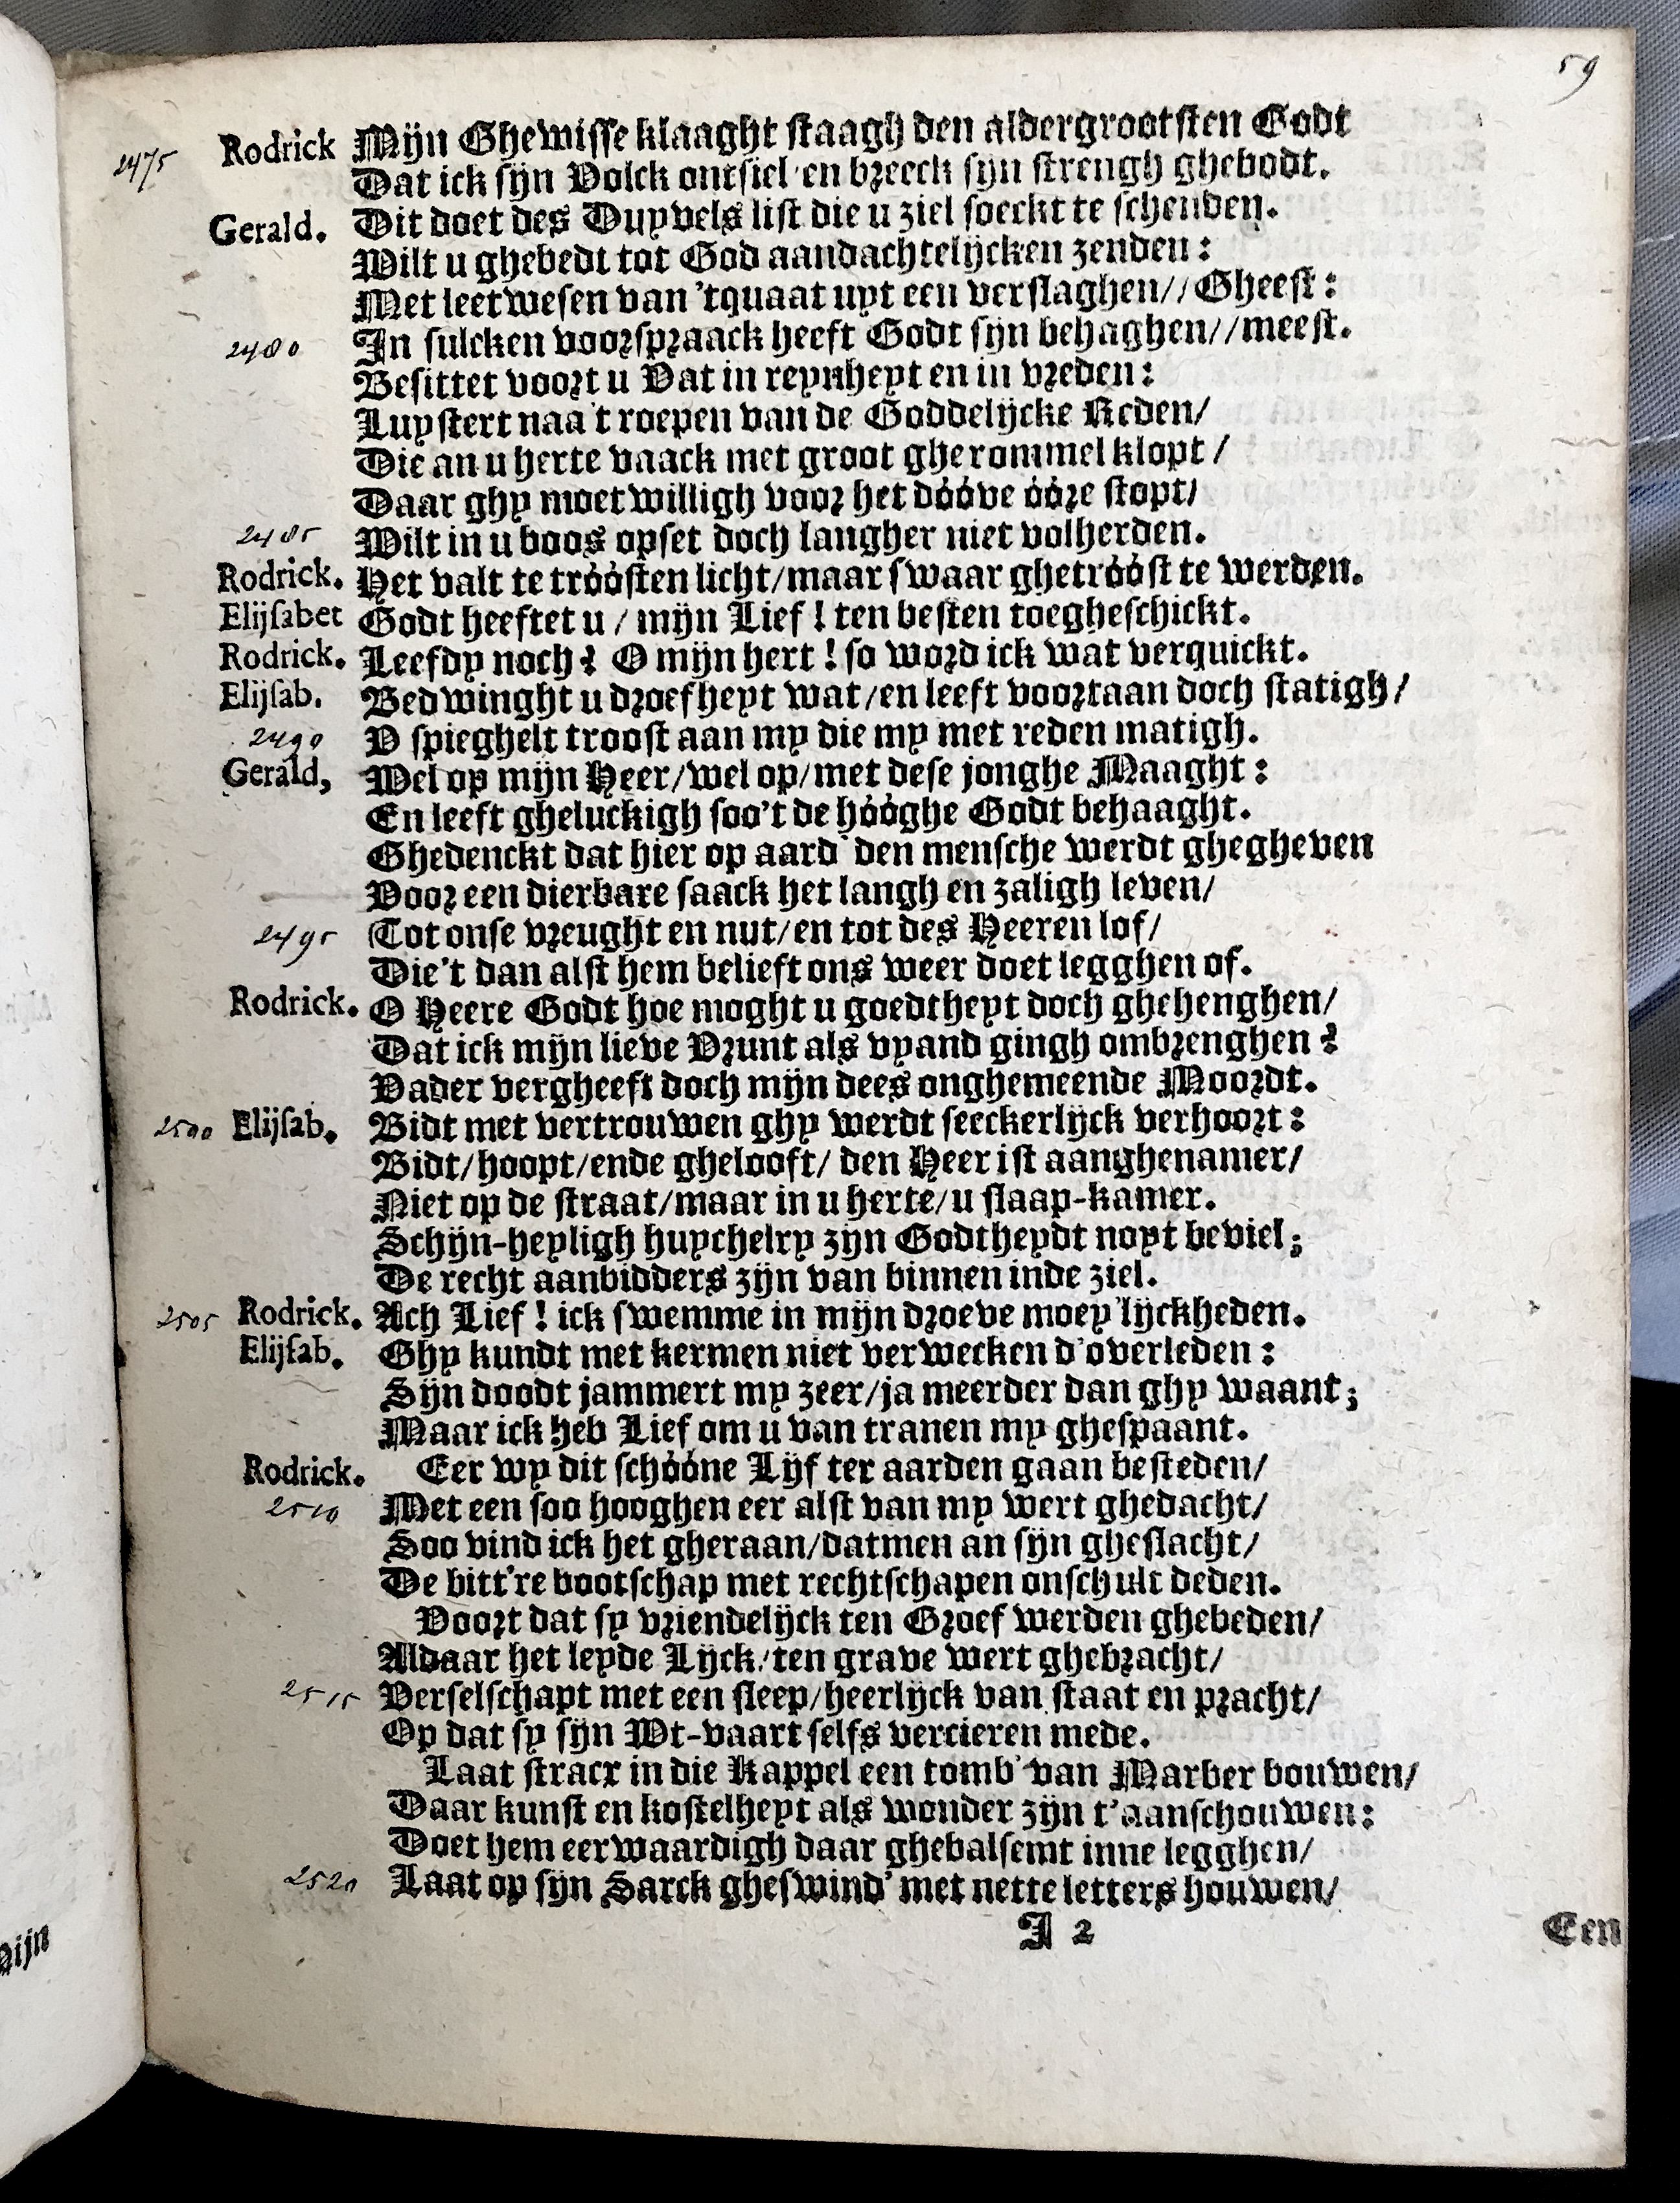 59
2475 Rodrick Mijn Ghewisse klaaght staagh den aldergrootsten Godt
Dat ick sijn Volck ontsiel en breeck sijn strengh ghebodt.
Gerald. Dit doet des Duyvels list die u ziel soeckt te schenden.
Wilt u ghebedt tot God aandachtelijcken zenden:
Met leetwesen van 'tquaat uyt een verslaghen//Gheest:
2480 In sulcken voorspraack heeft Godt sijn behaghen//meest.
Besittet voort u Vat in reynheyt en in vreden:
Luystert naa't roepen van de Goddelijcke Reden/
Die an u herte vaack met groot gherommel klopt/
Daar ghy moetwilligh voor het dóóve óóre stopt/
2485 Wilt in u boos opset doch langher niet volherden.
Rodrick. Het valt te tróósten licht/maar swaar ghetróóst te werden.
Elijsabet Godt heeftet u/mijn Lief! ten besten toegheschickt.
Rodrick. Leefdy noch? O mijn hert! so word ick wat verquickt.
Elijsab. Bedwinght u droefheyt wat/en leeft voortaan doch statigh/
2490 V spieghelt troost aan my die my met reden matigh.
Gerald, Wel op mijn Heer/wel op/met dese jonghe Maaght:
En leeft gheluckigh soo't de hóóghe Godt behaaght.
Ghedenckt dat hier op aard' den mensche werdt ghegheven
Voor een dierbare saack het langh en zaligh leven/
2495 Tot onse vreught en nut/en tot des Heeren lof/
Die't dan alst hem belieft ons weer doet legghen of.
Rodrick. O Heere Godt hoe moght u goedtheyt doch ghehenghen/
Dat ick mijn lieve Vrunt als vyand gingh ombrenghen?
Vader vergheeft doch mijn dees onghemeende Moordt.
2500 Elijsab. Bidt met vertrouwen ghy werdt seeckerlijck verhoort:
Bidt/hoopt/ende ghelooft/den Heer ist aanghenamer/
Niet op de straat/maar in u herte/u slaap-kamer.
Schijn-heyligh huychelry zijn Godtheydt noyt beviel;
De recht aanbidders zijn van binnen inde ziel.
2505 Rodrick. Ach Lief! ick swemme in mijn droeve moey'lijckheden.
Elijsab. Ghy kundt met kermen niet verwecken d'overleden:
Sijn doodt jammert my zeer/ja meerder dan ghy waant;
Maar ick heb Lief om u van tranen my ghespaant.
Rodrick. Eer wy dit schóóne Lijf ter aarden gaan besteden/
2510 Met een soo hooghen eer alst van my wert ghedacht/
Soo vind ick het gheraan/datmen an sijn gheslacht/
De bitt're bootschap met rechtschapen onschult deden.
Voort dat sy vriendelijck ten Groef werden ghebeden/
Aldaar het leyde Lijck/ten grave wert ghebracht/
2515 Verselschapt met een sleep/heerlijck van staat en pracht/
Op dat sy sijn Wt-vaart selfs vercieren mede.
Laat stracx in die Kappel een tomb' van Marber bouwen/
Daar kunst en kostelheyt als wonder zijn t'aanschouwen:
Doet hem eerwaardigh daar ghebalsemt inne legghen/
2520 Laat op sijn Sarck gheswind' met nette letters houwen/
I 2 Een